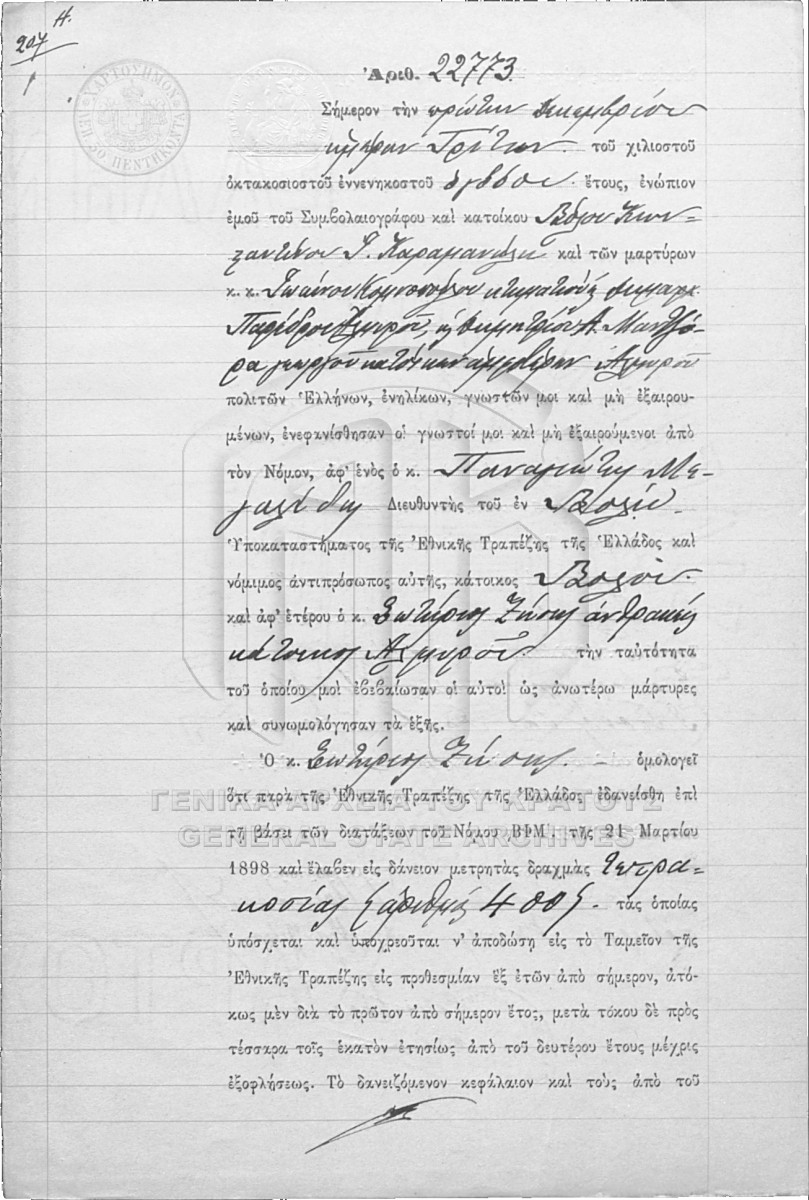 Η.
207
ΧΑΡΤΟΣΗΜΟΝ
ΛΕΠ. 50 ΠΕΝΤΗΚΟΝΤΑ
Ἀριθ. 22773.
Σήμερον τὴν πρώτην Δεκεμβρίου
ἡμέραν Τρίτην. τοῦ χιλιοστοῦ
ὀκτακοσιοστοῦ ἐννενηκοστοῦ ὀγδόου. ἔτους, ἐνώπιον
ἐμοῦ τοῦ Συμβολαιογράφου καὶ κατοίκου Βόλου Κων-
σταντίνου Καραμανώλη καὶ τῶν μαρτύρων
κ. κ. Ἰωάννου Κομνοπούλου κτηματίου Δημαρχ.
Παρέδρου Ἁλμυροῦ, Δημητρίου Α. Μαντζά-
ρα γεωργοῦ κατοίκων ἀμφοτέρων Ἁλμυροῦ
πολιτῶν Ἑλλήνων, ἐνηλίκων, γνωστῶν μοι καὶ μὴ ἐξαιρου-
μένων, ἐνεφανίσθησαν οἱ γνωστοί μοι καὶ μὴ ἐξαιρούμενοι ἀπὸ
τὸν Νόμον, ἀφ' ἑνὸς ὁ κ. Παναγιώτης Με-
γαλίδης Διευθυντὴς τοῦ ἐν Βόλῳ.
Ὑποκαταστήματος τῆς Ἐθνικῆς Τραπέζης τῆς Ἑλλάδος καὶ
νόμιμος ἀντιπρόσωπος αὐτῆς, κάτοικος Βόλου.
καὶ ἀφ' ἑτέρου ὁ κ. Σωτήριος Ζήσης ἀνθρακεὺς
κάτοικος Ἁλμυροῦ. τὴν ταὐτότητα
τοῦ ὁποίου μοὶ ἐβεβαίωσαν οἱ αὐτοὶ ὡς ἀνωτέρω μάρτυρες
καὶ συνωμολόγησαν τὰ ἑξῆς.
Ὁ κ. Σωτήριος Ζήσης. – ὁμολογεῖ
ὅτι παρὰ τῆς Ἐθνικῆς Τραπέζης τῆς Ἑλλάδος ἐδανείσθη ἐπὶ
ΓΕΝΙΚΑ ΑΡΧΕΙΑ ΤΟΥ ΚΡΑΤΟΥΣ
τῇ βάσει τῶν διατάξεων τοῦ Νόμου ΒΦΜ. τῆς 21 Μαρτίου
GENERAL STATE ARCHIVES
1898 καὶ ἔλαβεν εἰς δάνειον μετρητὰς δραχμὰς τετρα-
κοσίας (ἀριθμὸς 400). τὰς ὁποίας
ὑπόσχεται καὶ ὑποχρεοῦται ν' ἀποδώσῃ εἰς τὸ Ταμεῖον τῆς
Ἐθνικῆς Τραπέζης εἰς προθεσμίαν ἓξ ἐτῶν ἀπὸ σήμερον, ἀτό-
κως μὲν διὰ τὸ πρῶτον ἀπὸ σήμερον ἔτος, μετὰ τόκου δὲ πρὸς
τέσσαρα τοῖς ἑκατὸν ἐτησίως ἀπὸ τοῦ δευτέρου ἔτους μέχρις
ἐξοφλήσεως. Τὸ δανειζόμενον κεφάλαιον καὶ τοὺς ἀπὸ τοῦ